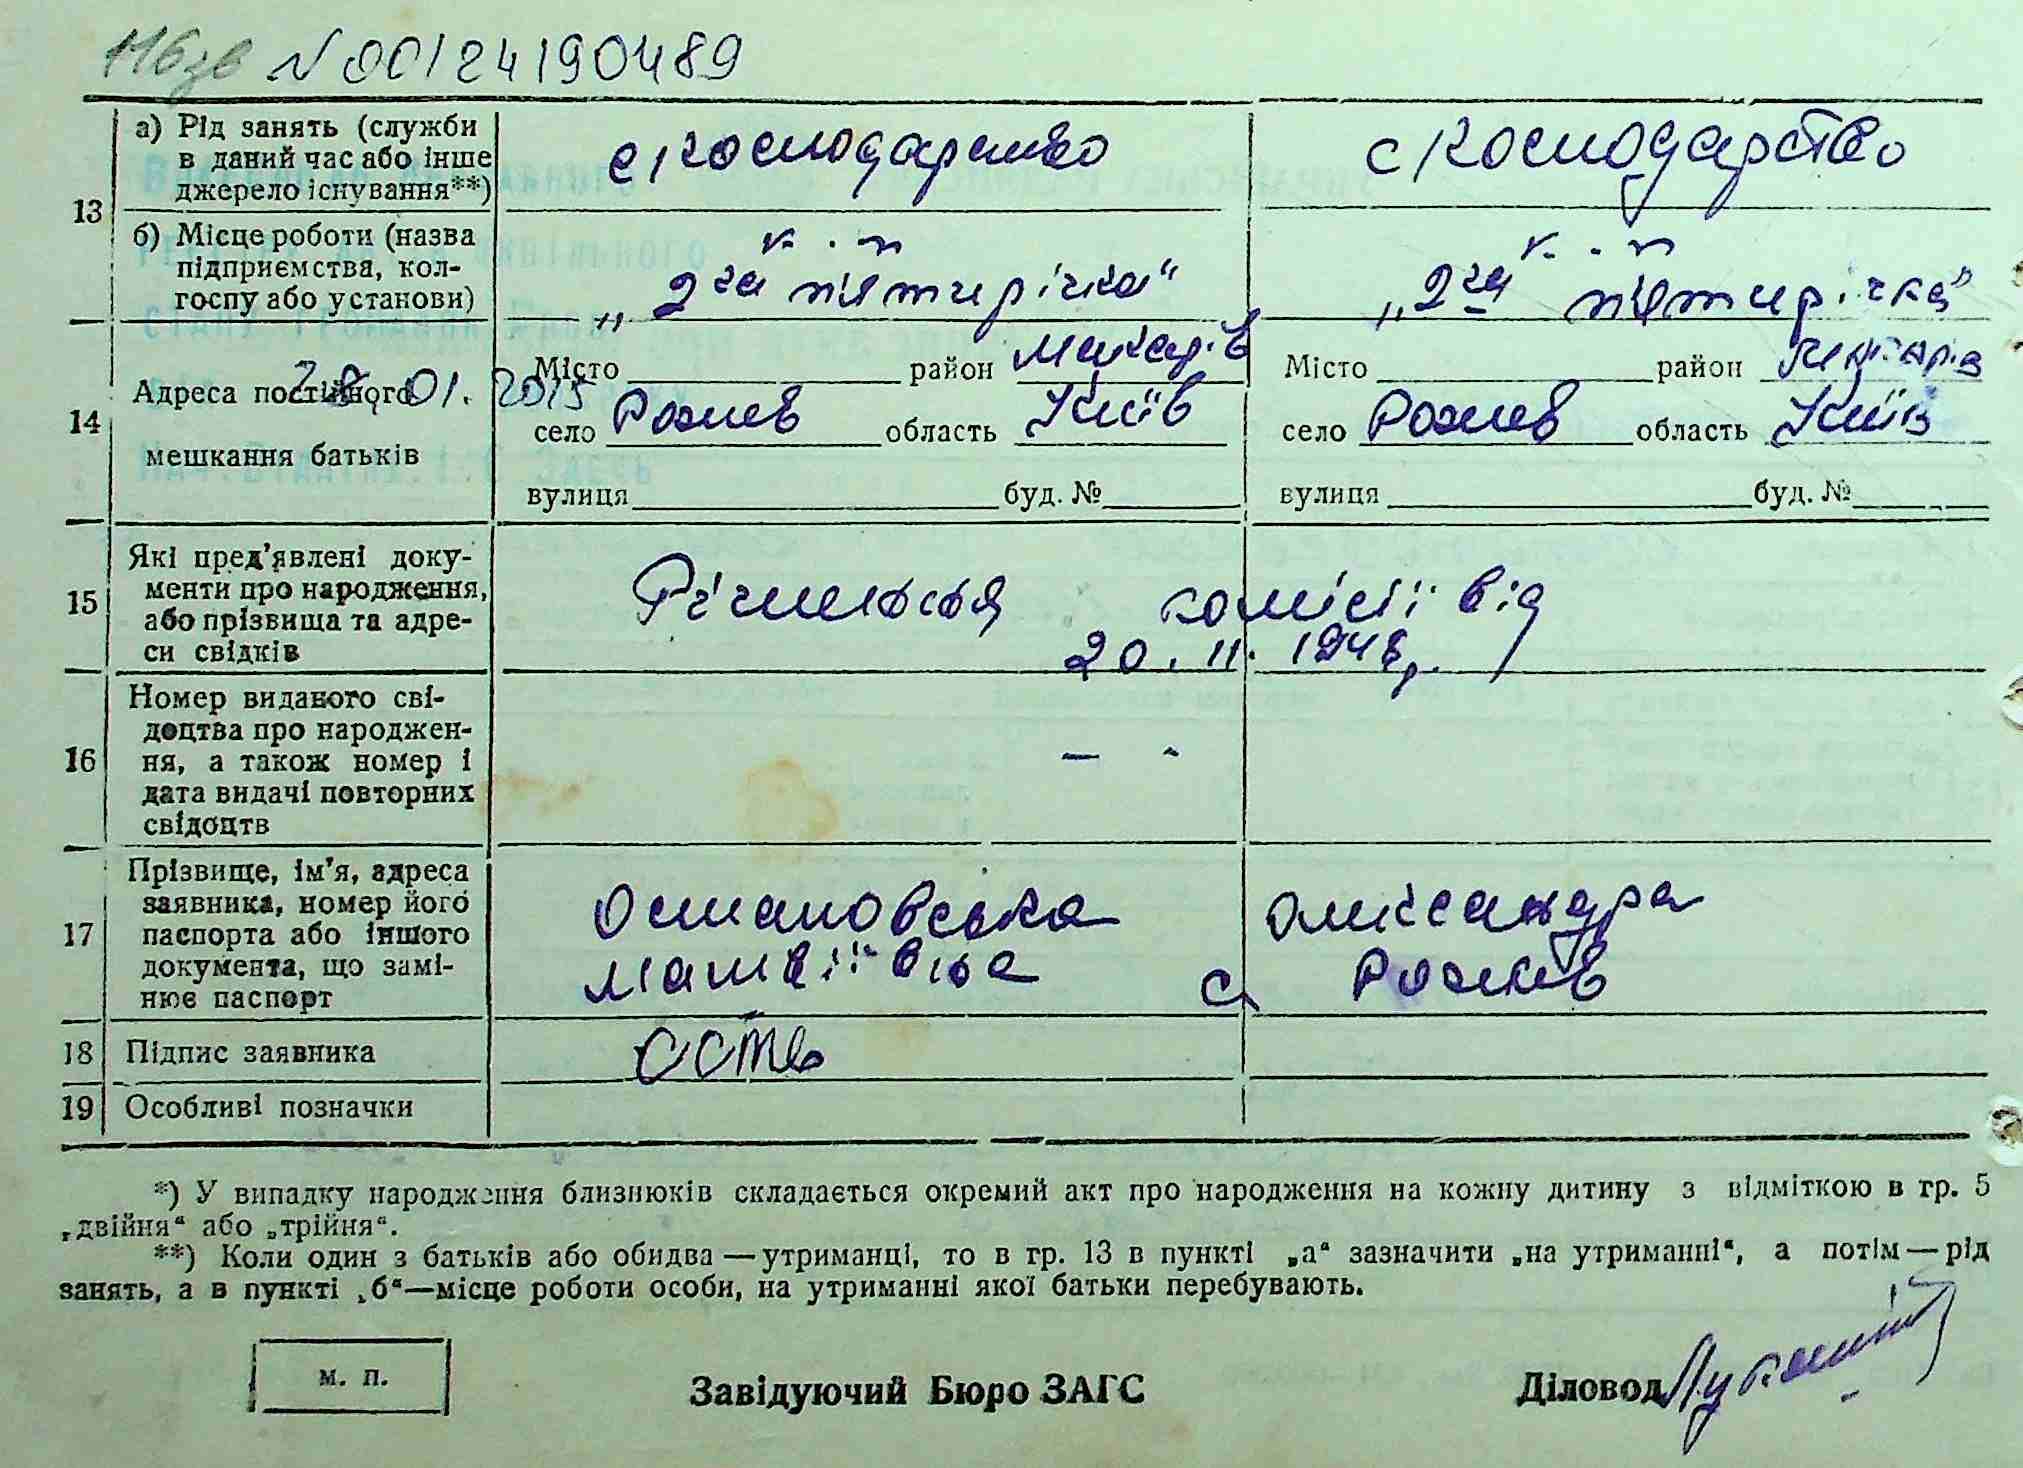 Пбзв №00124190489
13 а) Рід занять (служби в даний час або інше джерело існування**) с/косподарство с/косподарство
б) Місце роботи (назва підприємства, колгоспу або установи) к. п „2га пятирічка“ к. п „2га пятирічка“
14 Адреса постійного мешкання батьків 28.01.2015
Місто район Макарів Місто район Макарів
село Рожев область Київ село Рожев область Київ
вулиця буд. № вулиця буд. №
15 Які пред'явлені документи про народження, або прізвища та адреси свідків комісії від
20.11.1948р.
16 Номер виданого свідоцтва про народження, а також номер і дата видачі повторних свідоцтв — -
17 Прізвище, ім'я, адреса заявника, номер його паспорта або іншого документа, що замінює паспорт Остановська Олександра
Матвіївна с. Рожев
18 Підпис заявника
19 Особливі позначки
*) У випадку народження близнюків складається окремий акт про народження на кожну дитину з відміткою в гр. 5
„двійня“ або „трійня“.
**) Коли один з батьків або обидва — утриманці, то в гр. 13 в пункті „а“ зазначити „на утриманні“, а потім — рід
занять, а в пункті „б“—місце роботи особи, на утриманні якої батьки перебувають.
м. п. Завідуючий Бюро ЗАГС Діловод